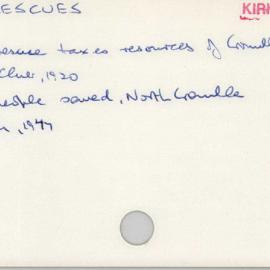 ESCUES KIRK
rescue taxes resources of Cronulla
Club, 1920
people saved, North Cronulla
, 1947